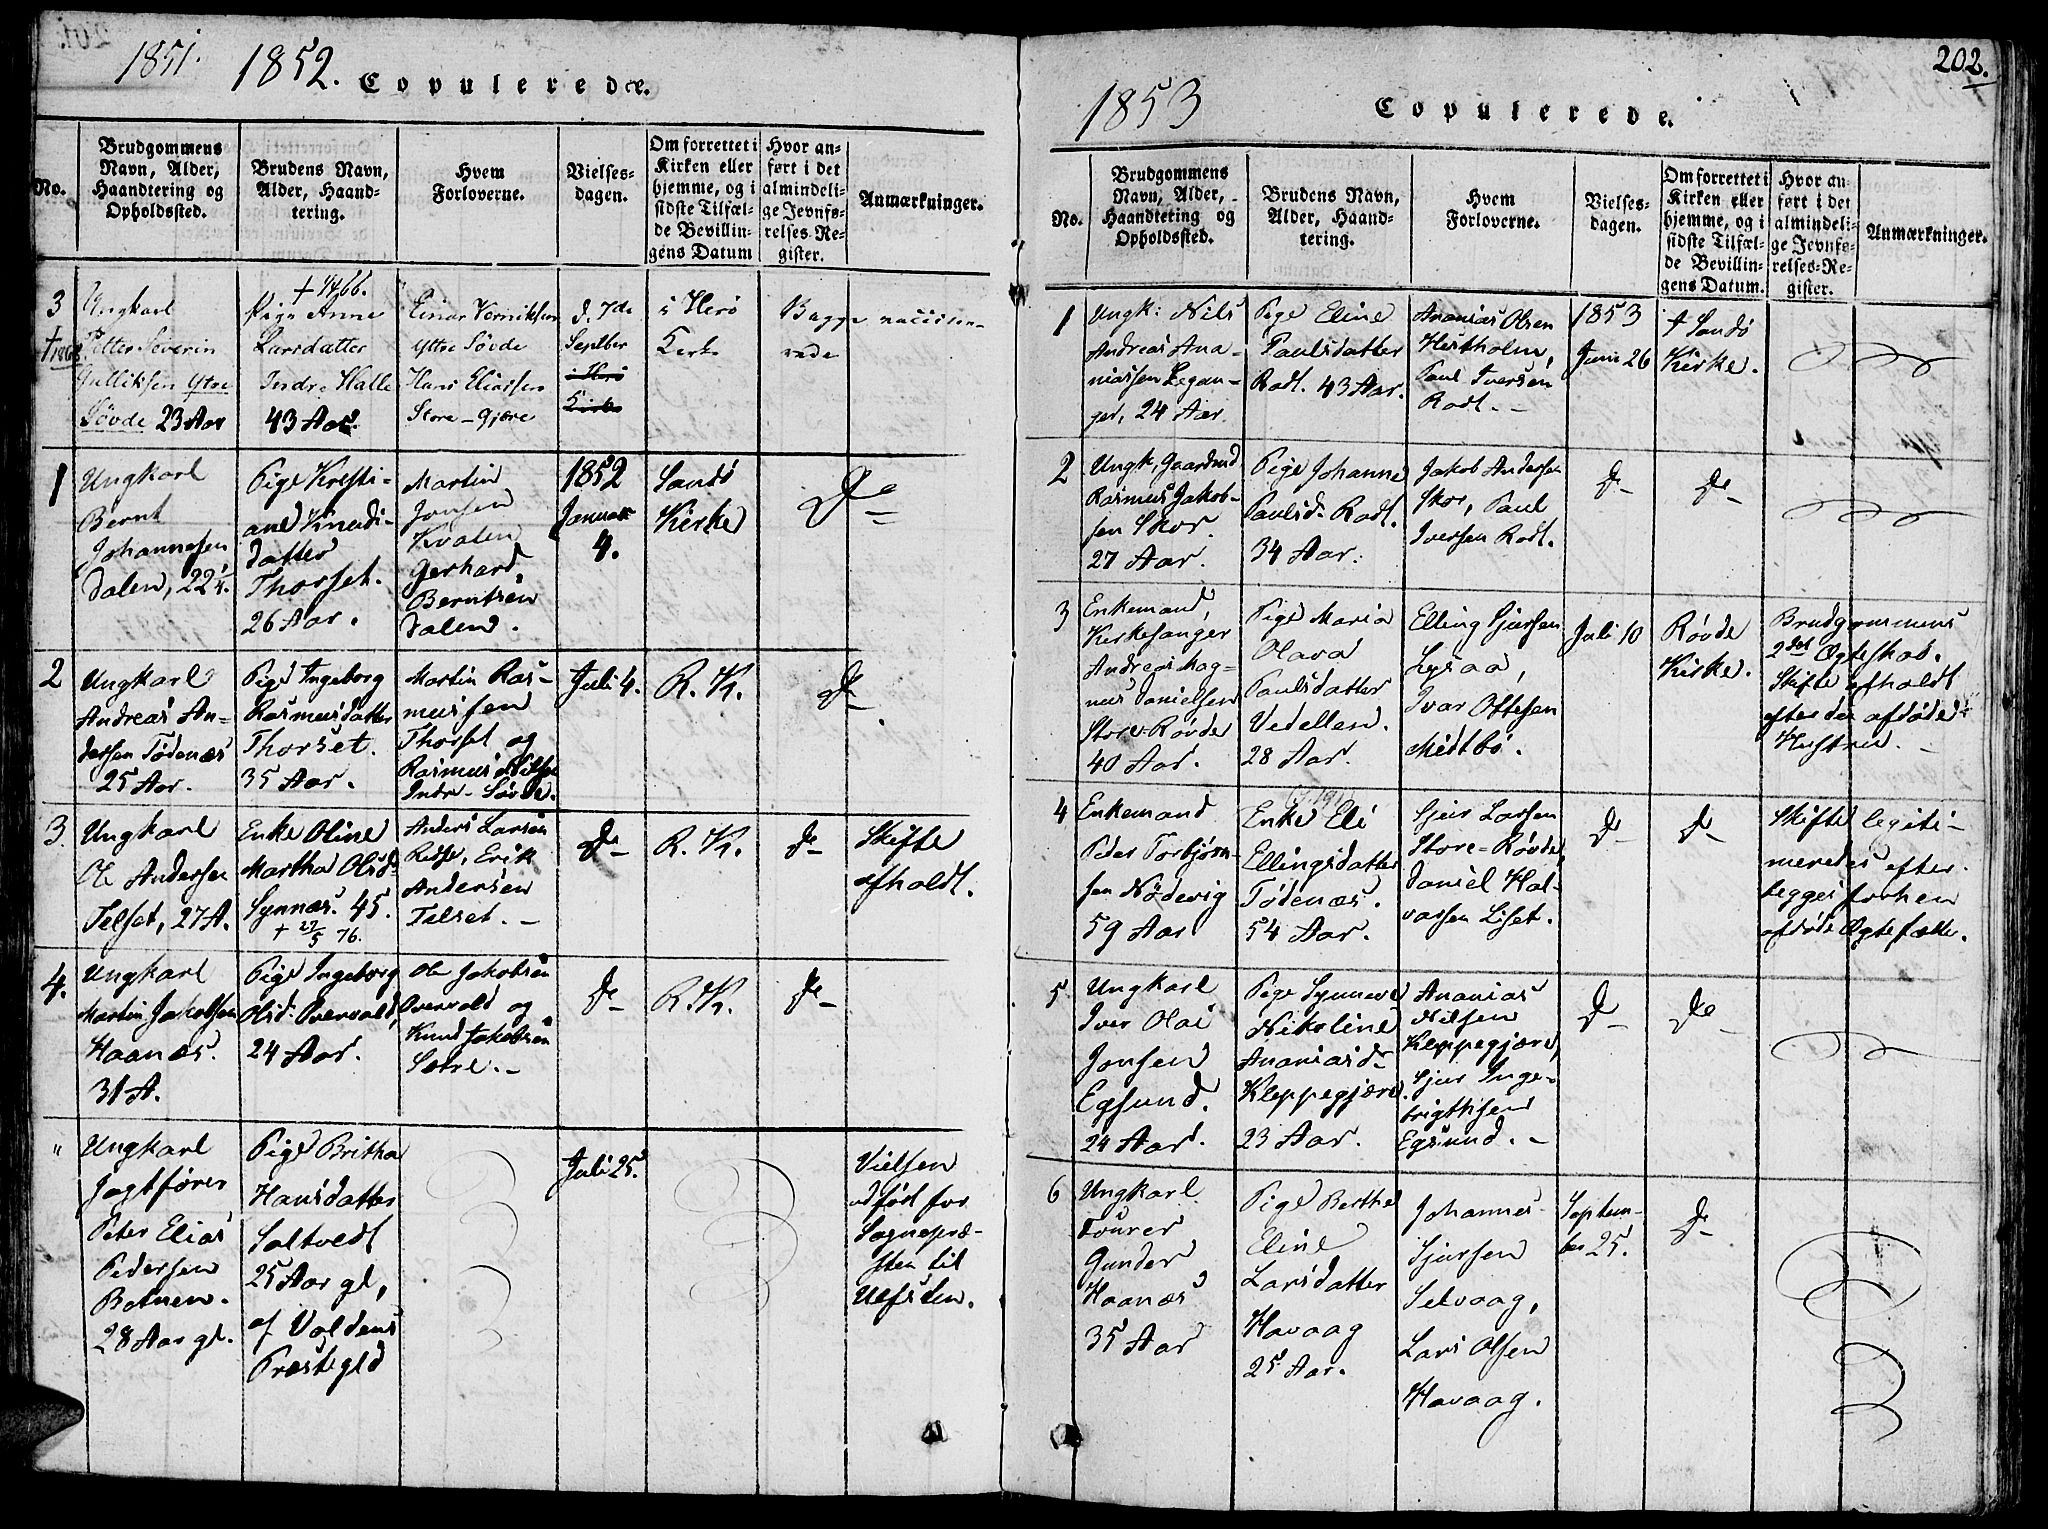 1851. 1852. Copulerede.
No.
Brudgommens
Navn, Alder,
Haandtering og
Opholdssted.
Brudens Navn,
Alder, Haand-
tering.
Hvem
Forloverne.
Vielses-
dagen.
Om forrettet i
Kirken eller
hjemme, og i
sidste Tilfæl-
de Bevillin-
gens Datum
Hvor an-
ført i det
almindeli-
ge Jevnfø-
relses-Re-
gister.
Anmærkninger.
3
Ungkarl
Petter Severin
Gulliksen Ytre
Søvde 23 Aar
Pige Anne
Larsdatter
Indre Halle
43 Aar.
Einar
Yttre Søvde
Hans Eliassen
Store-Gjære
d. 7de
Septber
i Herö
Kirke
i Herö
Kirke
Bagge
1
Ungkarl
Bernt
Johannesen
Dalen, 22 1/4.
Pige Kristi-
ane Knuds-
datter
Thorset.
26 Aar.
Martin
Jonsen
Kvalen
Gerhard
Berntsen
Dalen.
1852
Januar
4.
Sandø
Kirke
Do
2
Ungkarl
Andreas An-
dersen Tødenæs
25 Aar.
Pige Ingeborg
Rasmusdatter
Thorset.
35 Aar.
Martin Ras-
mussen
Thorset og
Rasmus Nilsen
Indr-Søvde.
Juli 4.
R. K.
Do
3.
Ungkarl
Ole Andersen
Telset, 27 A.
Enke Oline
Martha Olsd-
Synnæs. 45.
+ 27/5 76.
Anders Larsen
Risse, Erik
Andersen
Telset. -
Do
R. K.
Do
Skifte
afholdt.
4.
Ungkarl
Martin Jakobsen
Haanæs.
31 A.
Pige Ingeborg
Olsd: Overvold,
24 Aar.
Ole Jakobsen
Overvold og
Knud Jakobsen
Sætre. -
Do
R. K.
Do
"
Ungkarl
Jagtfører
Peter Elias
Pedersen
Botnen.
28 Aar gl.
Pige Britha
Hansdatter
Saltvedt
25 Aar gl,
af Voldens
Præstegld
Juli 25.
Vielsen
udført for
Sognepræ-
sten til
Ulfsten.
202.
1853 Copulerede.
No.
Brudgommens
Navn, Alder,
Haandtering og
Opholdssted.
Brudens Navn,
Alder, Haand-
tering.
Hvem
Forloverne.
Vielses-
dagen.
Om forrettet i
Kirken eller
hjemme, og i
sidste Tilfæl-
de Bevillin-
gens Datum.
Hvor an-
ført i det
almindeli-
ge Jevnfø-
relses-Re-
gister.
Anmærkninger.
1
Ungk: Nils
Andreas Ana-
niassen Legan-
ger, 24 Aar.
Pige Eline
Paulsdatter
Rodt. 43 Aar.
Ananias Olsen
Hestholm,
Paul Iversen
Rodt. -
1853
Juni 26
Sandø
Kirke.
2
Ungk, Gaardmd
Rasmus Jakob-
sen Skor.
27 Aar.
Pige Johanne
Paulsd. Rodt.
34 Aar.
Jakob Andersen
Skor, Paul
Iversen Rodt.
Do
Do
3
Enkemand,
Kirkesanger
Andreas Mag-
nus Danielsen
Store-Røvde
40 Aar.
Pige Maria
Olava
Paulsdatter
Vedellen.
28 Aar.
Elling Sjursen
Lysaa,
Ivar Ottesen
Meidtbø.
Juli 10
Røvde
Kirke.
Brudgommens
2det Ægteskab.
Skifte afholdt
efter den afdøde
Hustru. -
4
Enkemand
Peder Torbjørn-
sen Nødevig
59 Aar
Enke Eli
Ellingsdatter
Tødenæs.
54 Aar.
Sjur Larsen
Store-Røvde,
Daniel Hal-
varsen Liset.
Do
Do
Skifte legiti-
meredes efter
begges forhen
afdøde Ægtefælle.
5.
Ungkarl
Iver Olai
Jonsen
Egsund.
24 Aar.
Pige Synneve
Nikoline
Ananiasd-
Kleppegjære.
23 Aar.
Ananias
Nilsen
Kleppegjære,
Sjur Inge-
brigtsen
Egsund. -
Do
Do
6
Ungkarl
Tourer
Gunder
Haanæs
35 Aar
Pige Berthe
Eline
Larsdatter
Havaag
25 Aar.
Johannes
Sjursen
Selvaag,
Lars Olsen
Havaag.
Septem-
ber 25.
Do